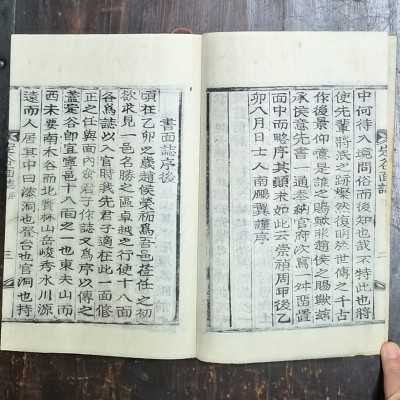 中何待入境問俗而後知也哉不特此也將
使先輩將泯之跡燦然復明於世傳之千古
作後景仰噫是誰之賜歟非趙侯之賜歟
承侯意先書一通奉納官府次爲一留置
面中而略序其顚末如此云崇禎周甲後乙
卯八月日士人南鵬翼謹序
書面誌序後
頃在乙卯之歲趙侯榮爲吾邑莅任之初
欲求見一邑名勝之區卓越之行使十八面
各爲誌以入官時我先君子適在此一面修
正之任與面內僉君子作誌文爲序以傳之
蓋是谷卽宜寧邑十八面之一也東夫山而
西未要南谷北林山岳峻秀水川源
遠而人居其中曰漆洞也登台也官洞也持